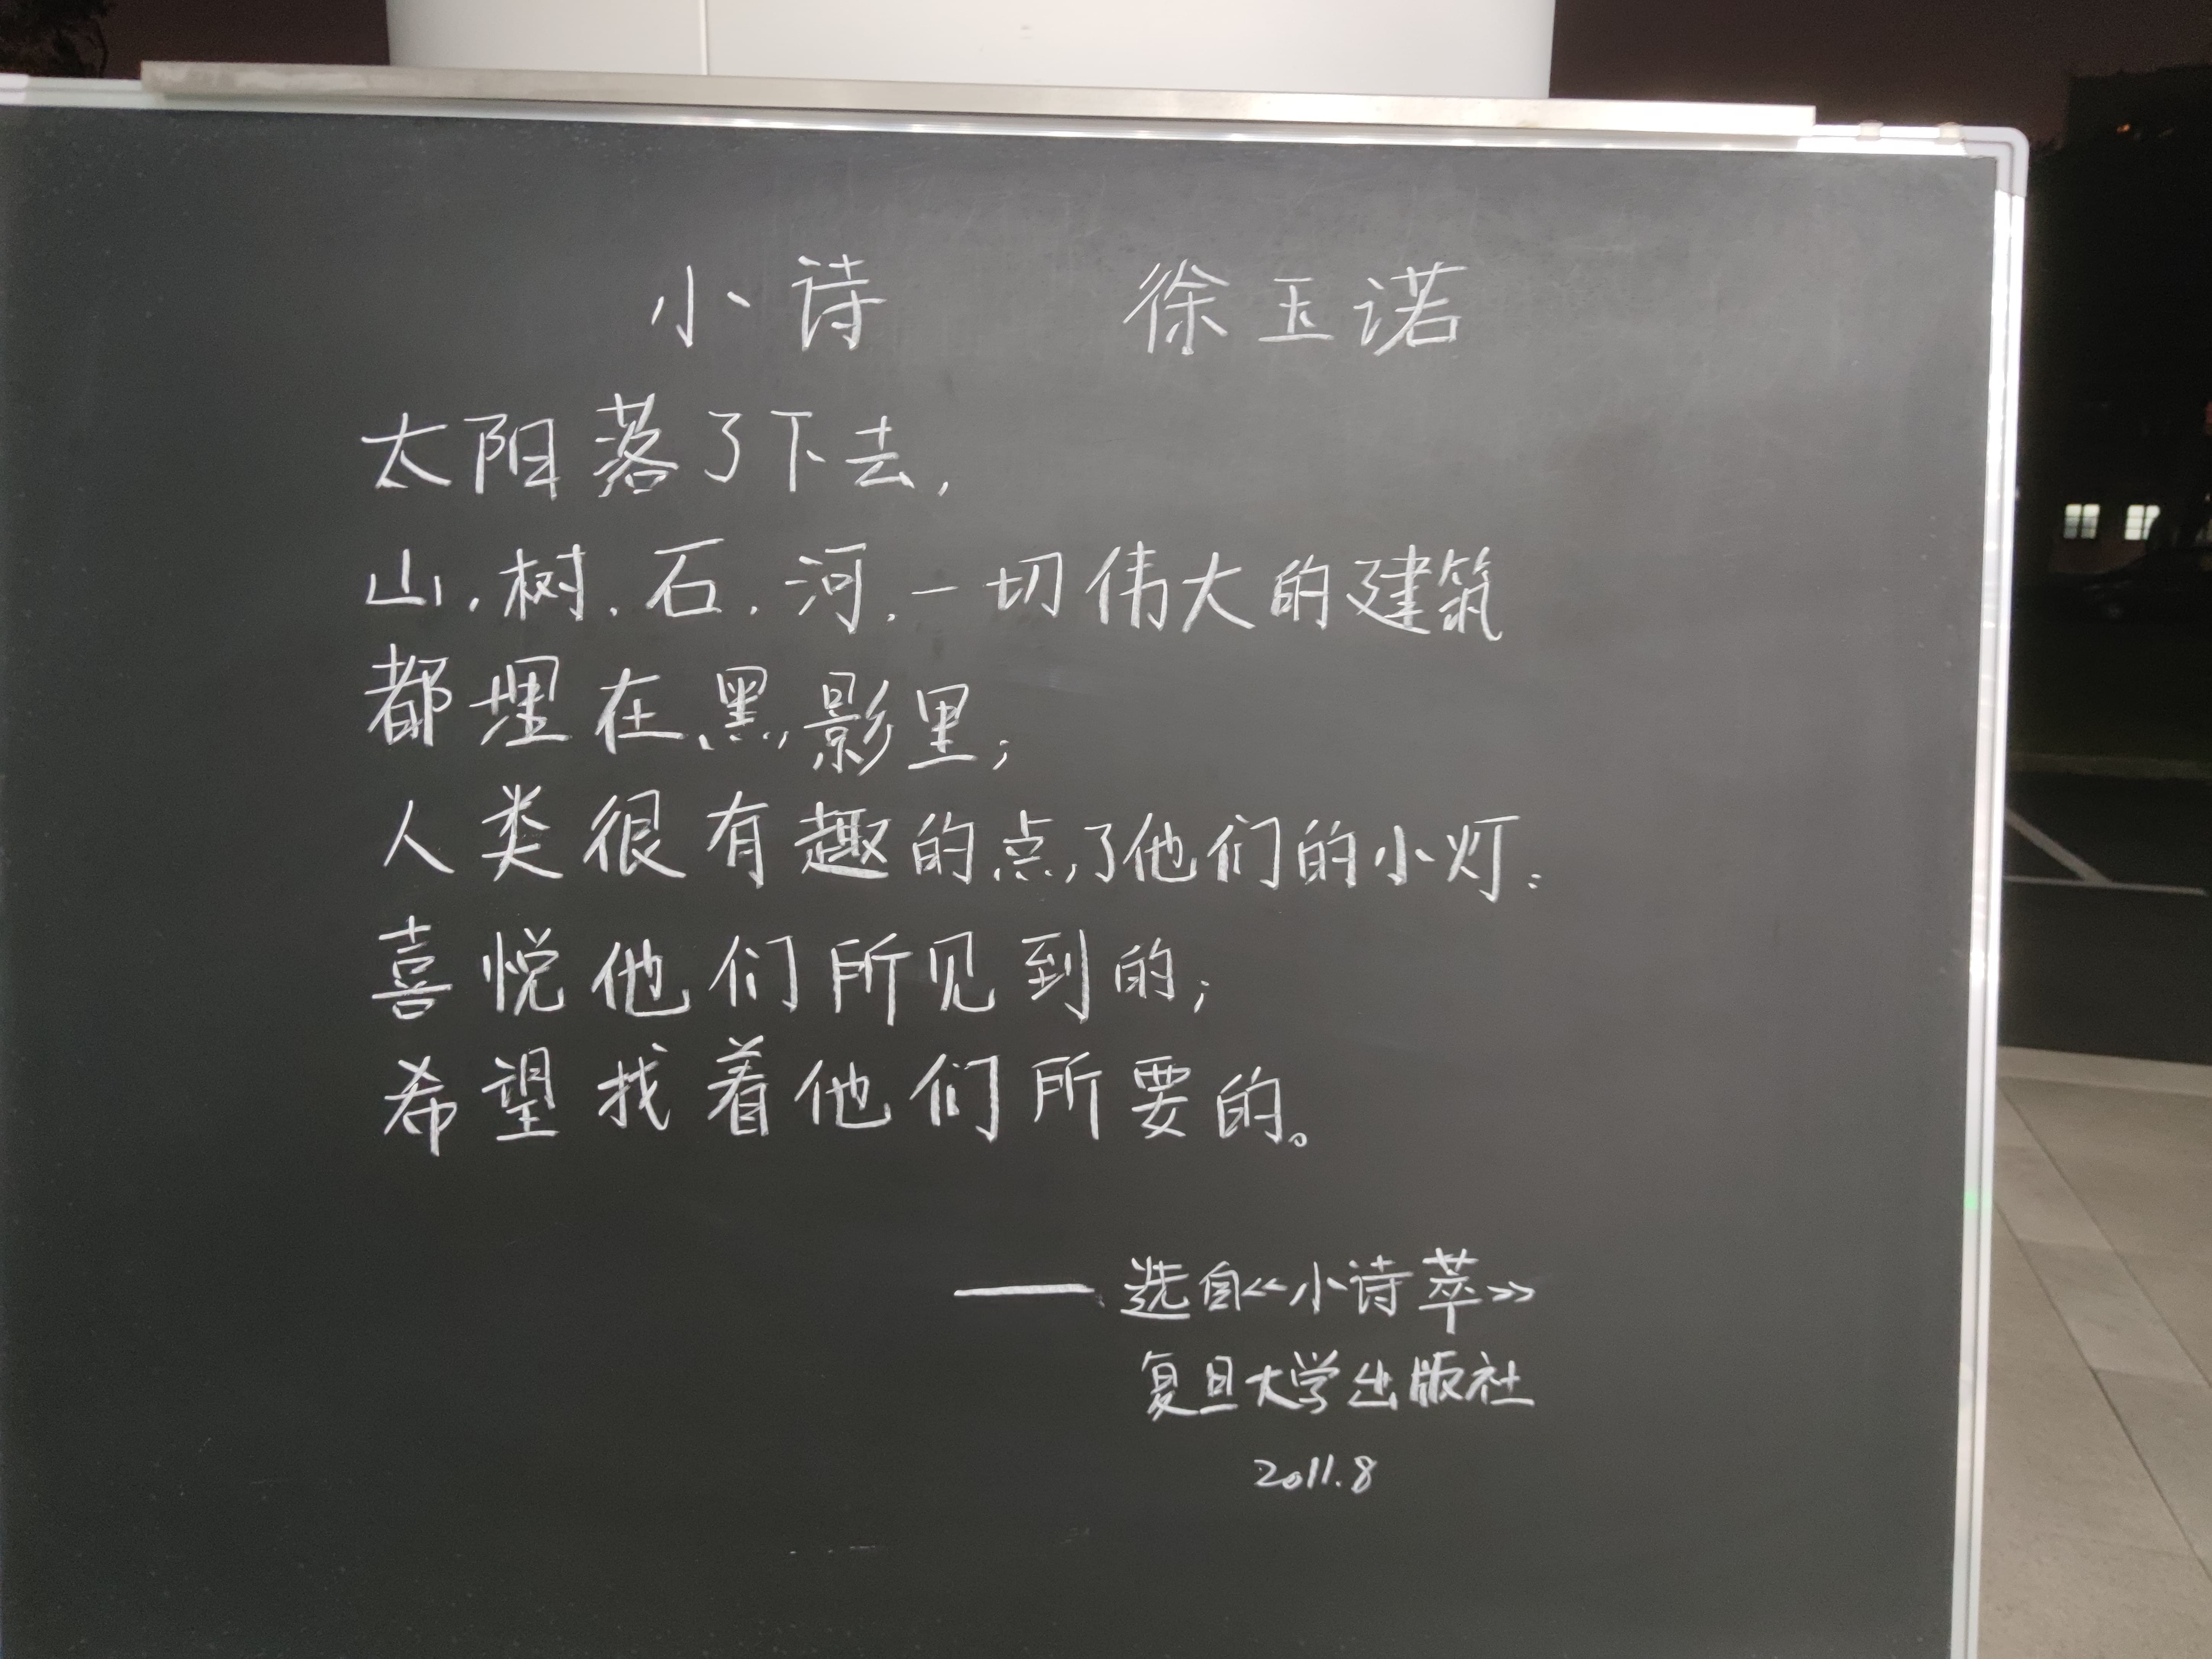 小诗 徐玉诺
太阳落了下去,
山,树,石,河,一切伟大的建筑
都埋在黑影里;
人类很有趣的点了他们的小灯:
喜悦他们所见到的;
希望找着他们所要的。
——选自《小诗萃》
复旦大学出版社
2011.8